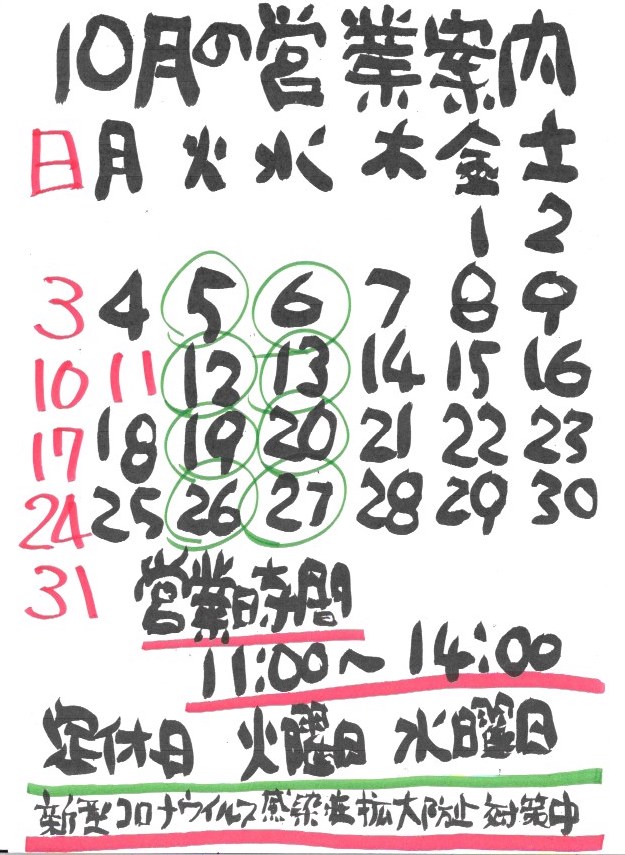 10月の営業案内
日 月 火 水 木 金 土
1 2
3 4 5 6 7 8 9
10 11 12 13 14 15 16
17 18 19 20 21 22 23
24 25 26 27 28 29 30
31
営業時間
11:00～14:00
定休日 火曜日 水曜日
新型コロナウイルス感染症拡大防止対策中